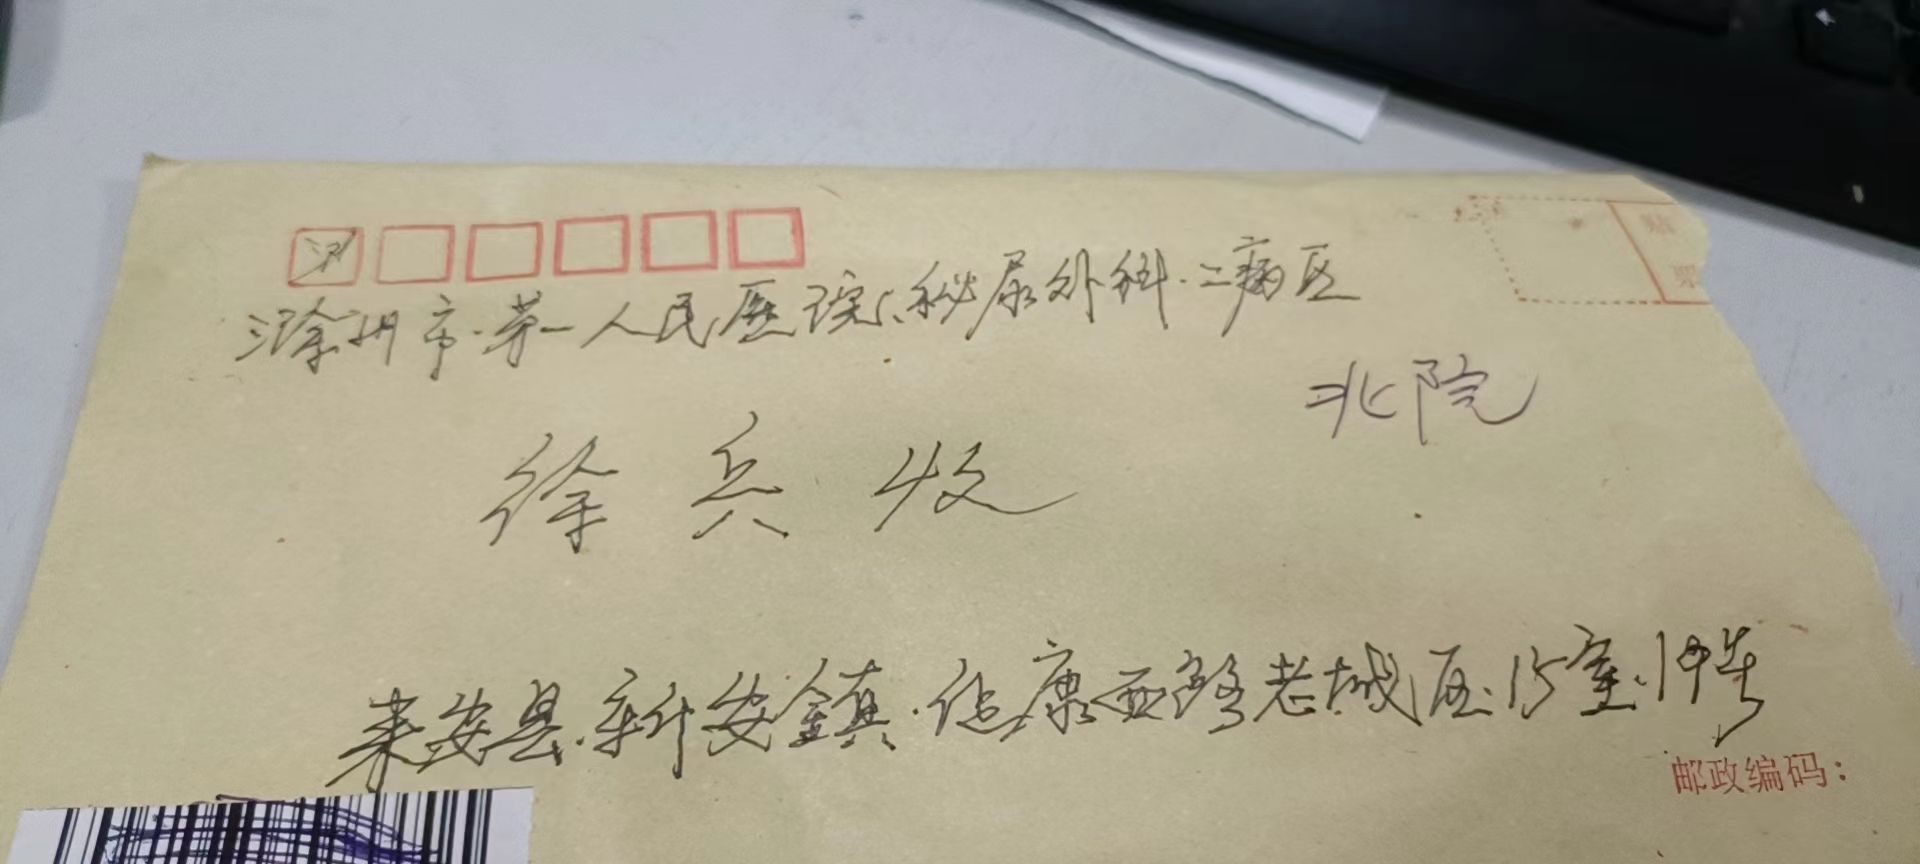 滁州市·第一人民医院、秘尿外科·二病区
北院
徐兵收
来安县·新安镇·健康西路老城区·15室·19号
邮政编码：